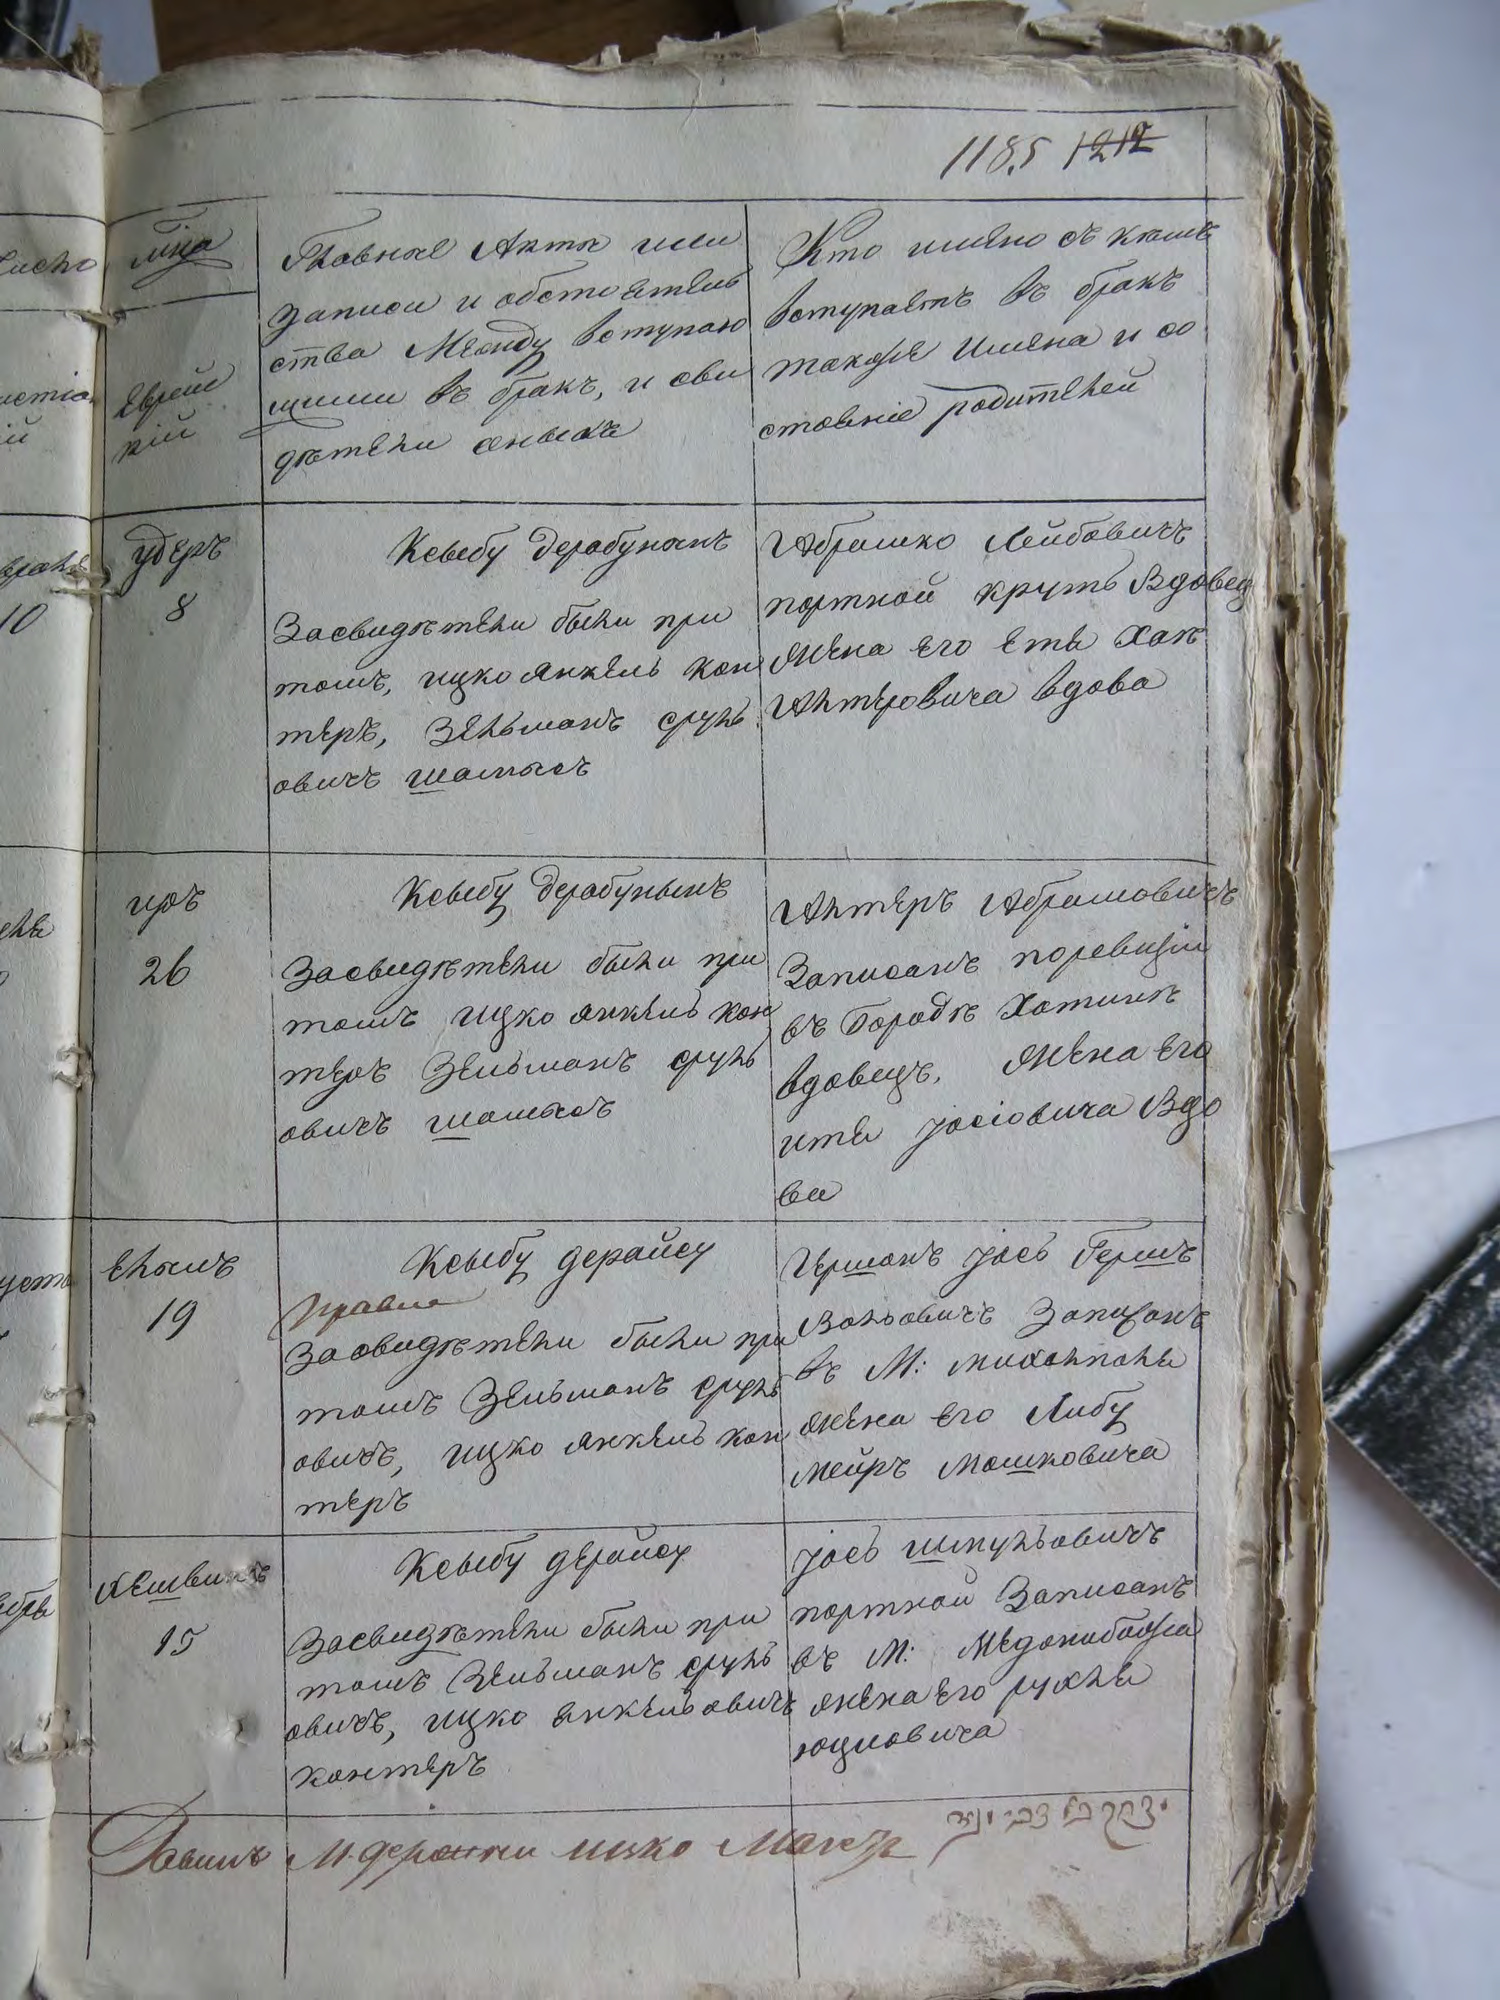 1185 1212
число
мца
Главные Акты или
записи и обстоятель
ства между вступаю
щими въ бракъ, и сви
детели оныхъ
Кто имено съ кемъ
вступаетъ въ бракъ
такоже имена и со
стояніе родителей
еврейс
кій
10
удеръ
8
Ксыбу дерабунанъ
Засвидѣтели были при
томъ, ицко янкель кон
теръ, Зельманъ сруль
овичъ шамысъ
Абрамко Лейбовичъ
портной крутъ вдовец
жена его ета Хак
Альтеровича вдова
иръ
26
Ксыбу дерабунынъ
Засвидѣтели были при
томъ ицко янкель кон
теръ Зельманъ сруль
овичъ шамысъ
Альтеръ Абрамовичъ
Записанъ поревизіи
въ Городѣ Хотинѣ
вдовецъ, жена его
ита іосіовича вдо
ва
елылъ
19
Ксыбу дерайсу
Засвидѣтели были при
томъ Зельманъ сруль
овичъ, ицко янкель кон
теръ
Германъ іось Гершъ
Вольовичъ Записанъ
въ М: михалполе
жена его Либу
мейръ мошковича
хешвинъ
15
Ксыбу дерайсу
Засвидѣтели были при
томъ Зельманъ сруль
овичъ, ицко янкельовичъ
контеръ
іось шмульовичъ
портной Записанъ
въ М: Меджибожа
жена его рухля
юцковича
Равинъ М. деражни ицко